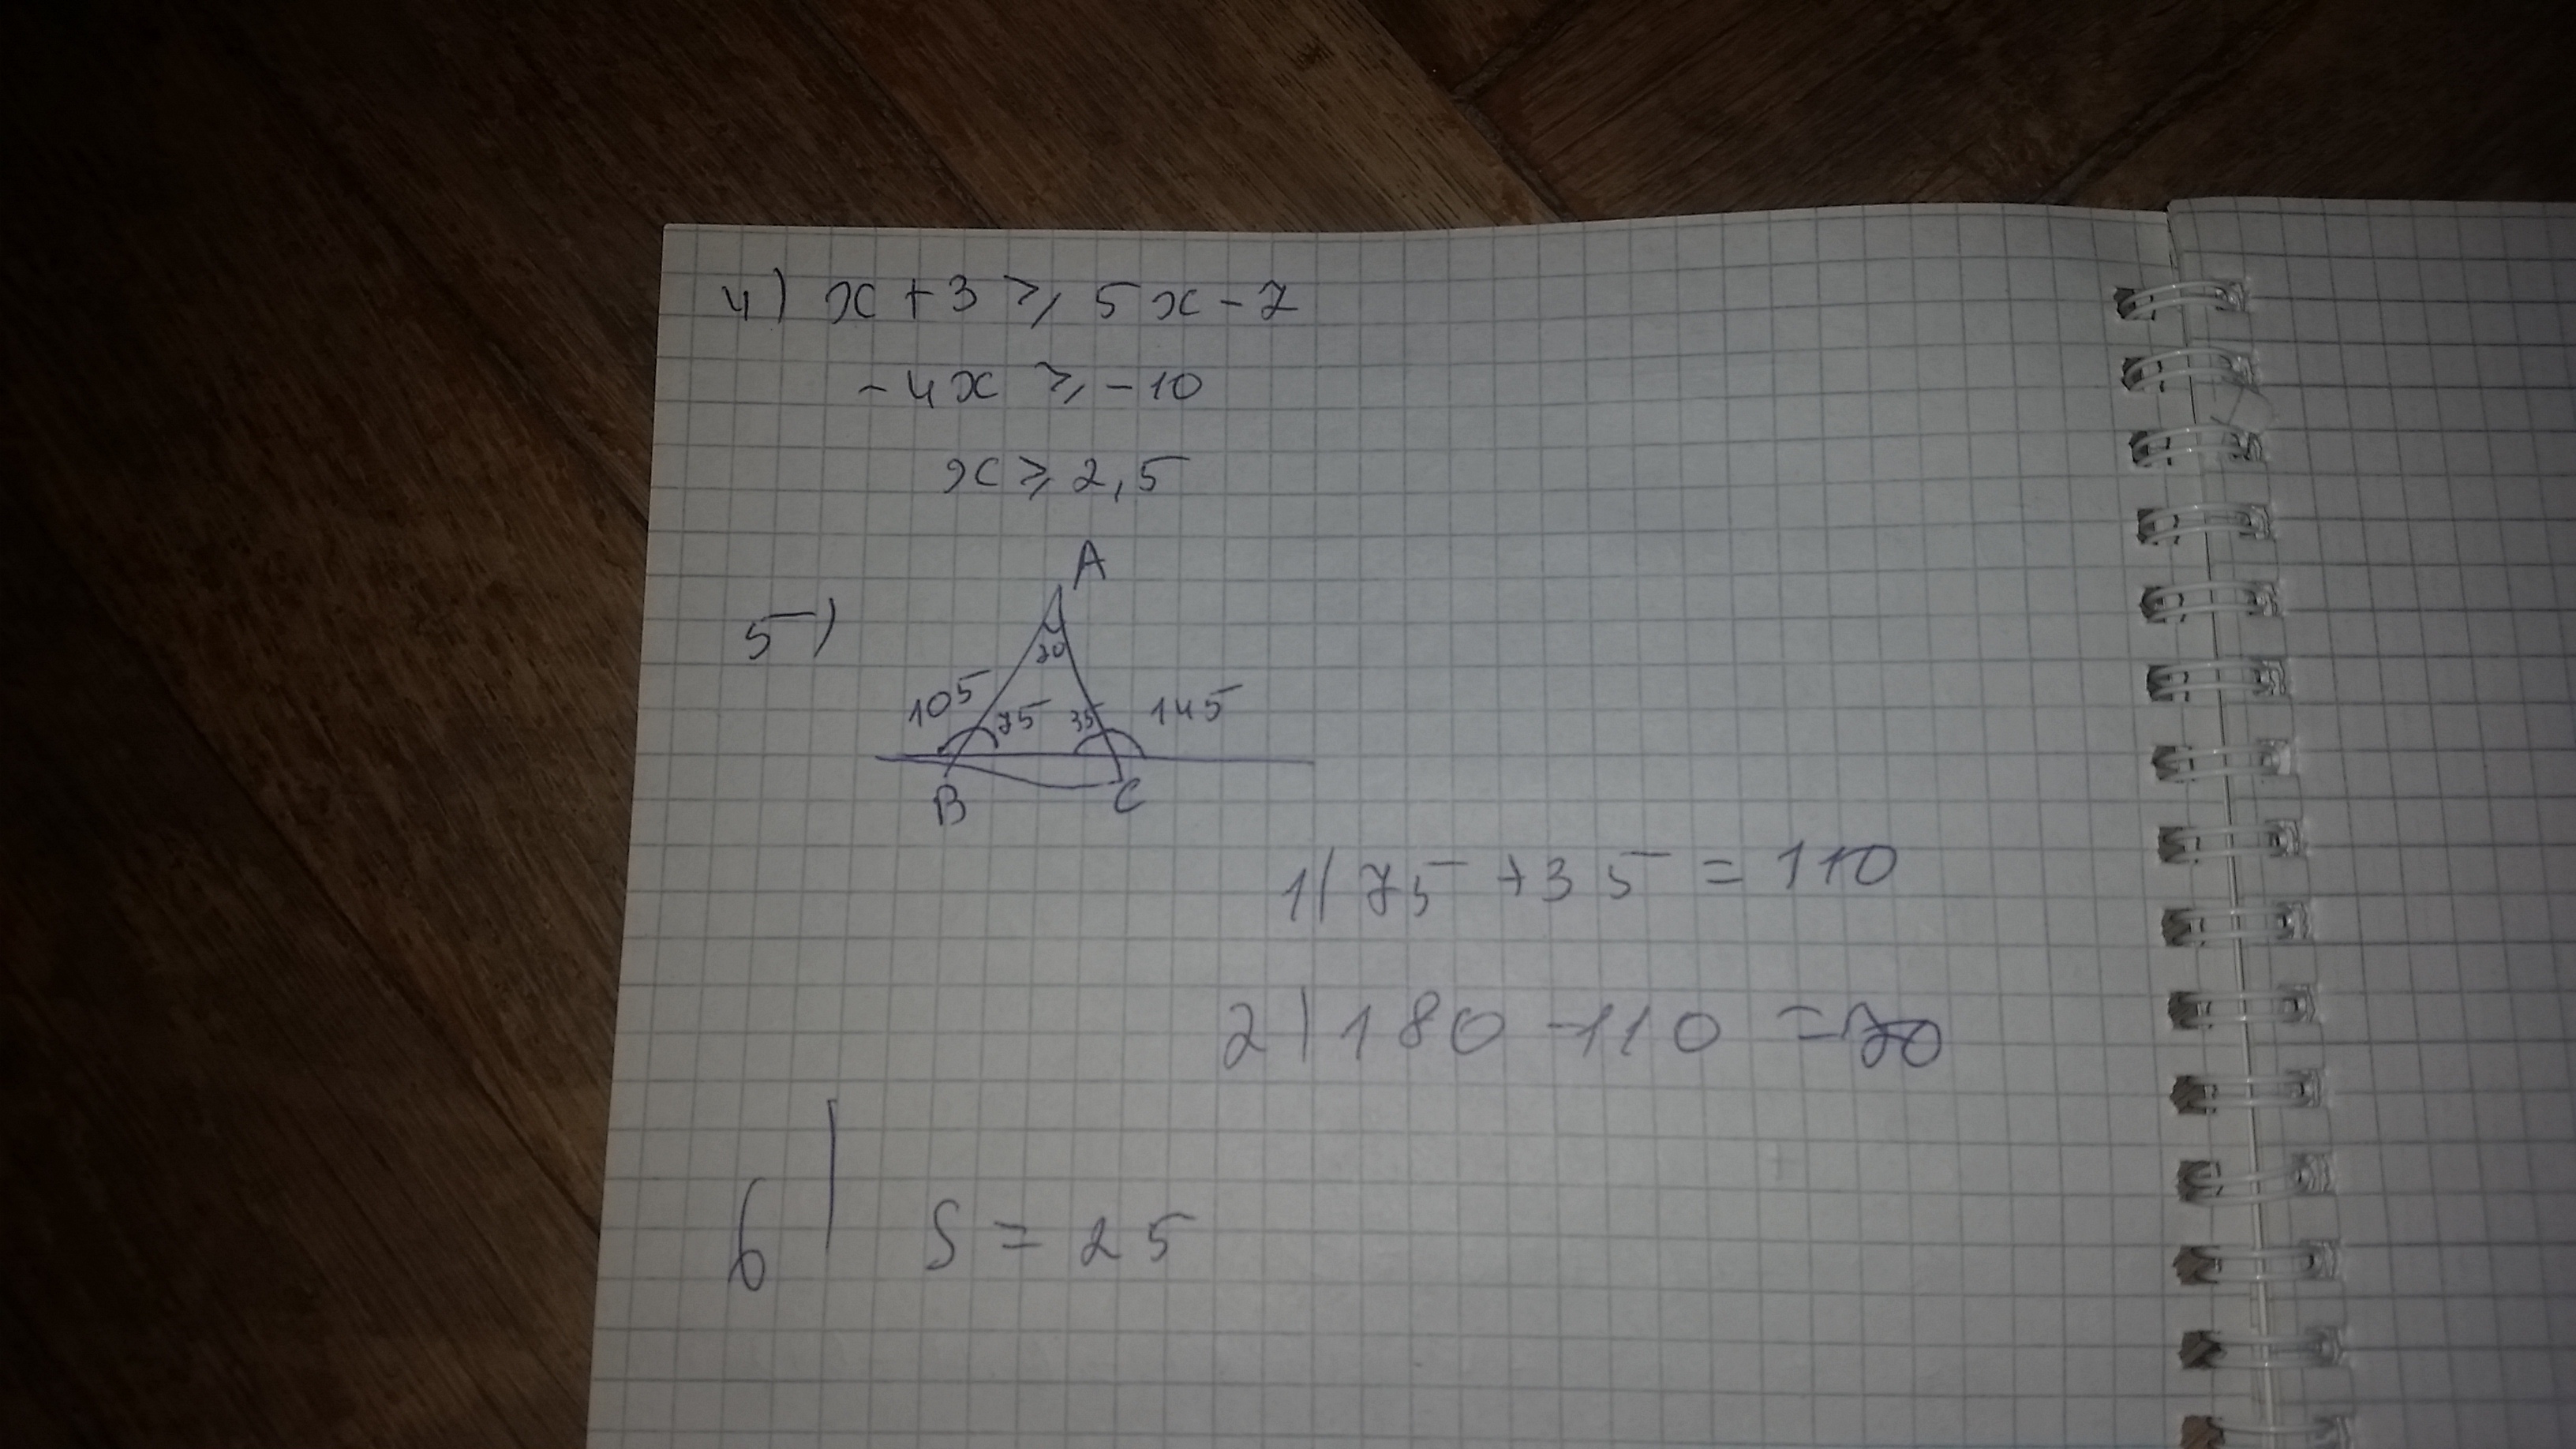 4) x + 3 ⩾ 5x - 7
- 4x ⩾ - 10
x ⩾ 2,5
5)
A
70
105 75 35 145
B C
1) 75 + 35 = 110
2) 180 - 110 = 70
6) S = 25